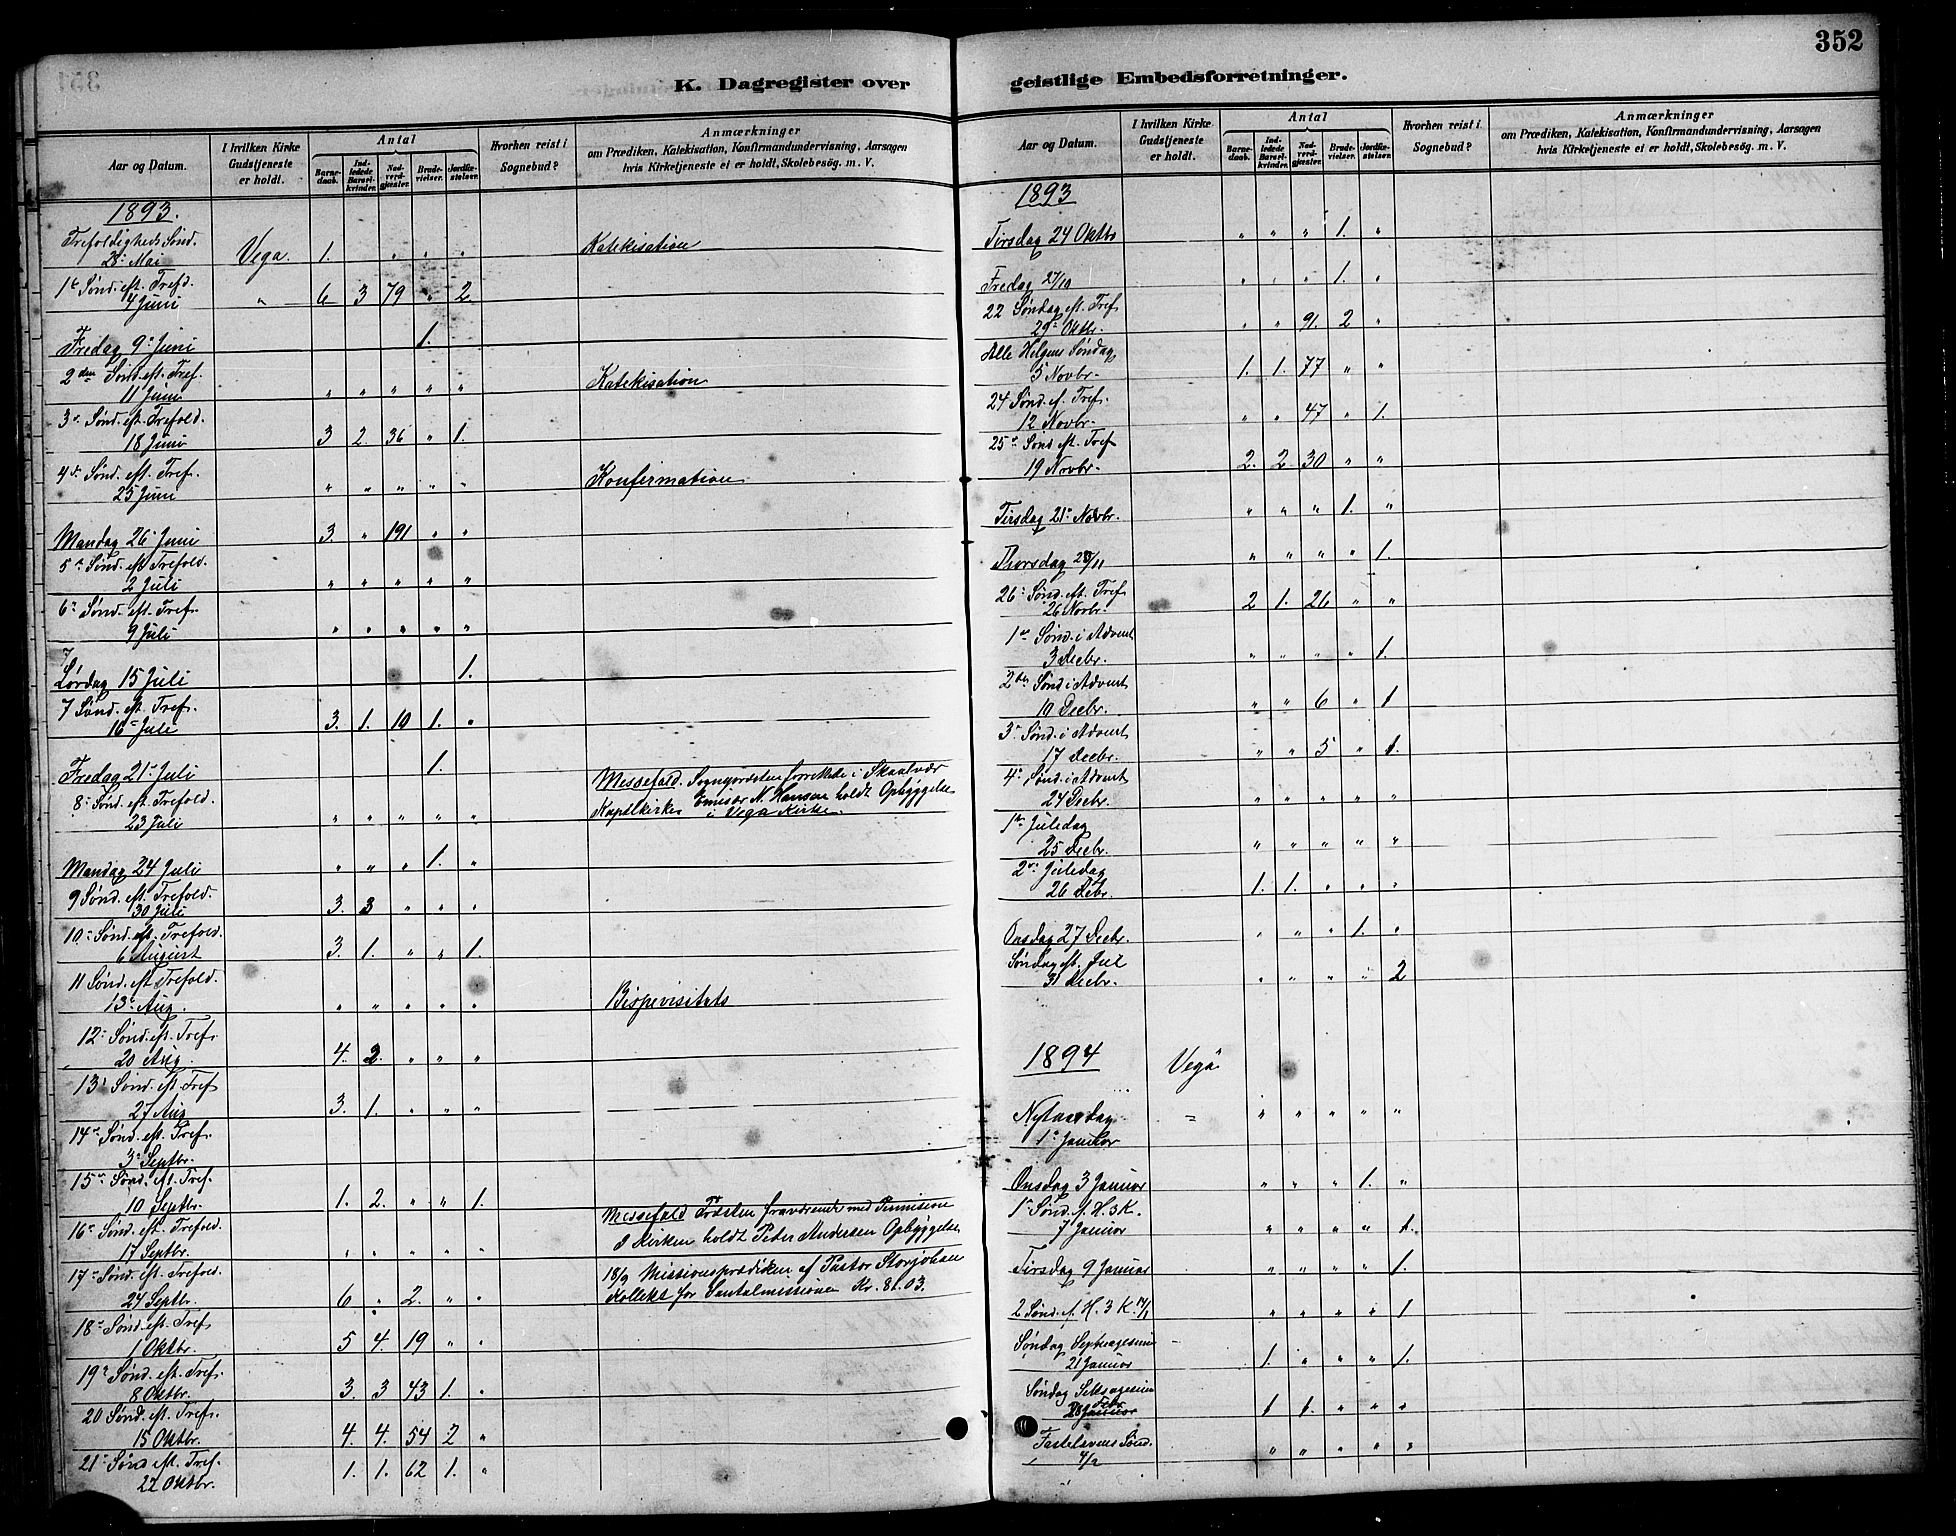 352
K. Dagregister over
geistlige Embedsforretninger.
Aar og Datum.
I hvilken Kirke Gudstjeneste er holdt.
Antal
Barnedaab.
Indledede Barselkvinder.
Nadverdgjæster.
Brudevielser.
Jordfæstelser.
Hvorhen reist i Sognebud?
Anmærkninger
om Prædiken, Katekisation, Konfirmandundervisning, Aarsagen
hvis Kirketjeneste ei er holdt, Skolebesøg. m. V.
1893.
Trefoldigheds Sønd.
28 Mai Vega. 1. " " " Katekisation
1ste Sønd. eft. Trefd.
4 Juni " 6 3 79 " 2
Fredag 9 Juni 1.
2den Sønd. eft. Tref.
11 Juni " " " " " Katekisation
3 Sønd. eft. Trefold.
18 Juni 3 2. 36 " 1.
4de Sønd. eft. Tref.
25 Juni " " " " " Konfirmation
Mandag 26 Juni 3. " 191 " "
5 Sønd. eft. Trefold.
2 Juli " " " " "
6 Sønd. eft. Tref.
9 Juli " " " " "
7
Lørdag 15 Juli 1.
7 Sønd. eft. Tref.
16 Juli 3. 1. 10 1. "
Fredag 21 Juli 1.
8 Sønd. eft. Trefold. Messefald. Sognepræsten forrettede i Skaalvær
23 Juli " " " " " Kapelkirke Emisær N. Hansen holdt Opbyggelse
i Vega Kirke
Mandag 24 Juli " " " 1. "
9 Sønd. eft. Trefold.
30 Juli 3. 3 " " "
10 Sønd. eft. Trefold.
6 August 3. 1. " " 1.
11 Sønd. eft Trefold.
13 Aug. " " " " " Bispevisitats
12 Sønd. eft. Tref.
20 Aug. 4. 2. " " "
13 Sønd. eft. Tref
27 Aug 3. 1. " " "
14 Sønd. eft. Tref.
3 Septbr.
15 Sønd. eft. Tref.
10 Septbr. 1. 2. " " 1.
16 Sønd. eft. Trefold. Messefald Præsten fraværende med Permission
17 Septbr. " " " " " I Kirken holdt Peder Andersen Opbyggelse
17 Sønd. eft. Trefold. 18/9 Missionsprædiken af Pastor Storjohan
24 Septbr. 6 " 2. " " Kollekt for Santalmissionen Kr. 81.03.
18 Sønd. eft. Tref
1 Oktbr. 5 4. 19 " "
19 Sønd. eft. Tref.
8 Oktbr. 3. 3 43 1. "
20 Sønd. eft. Tref.
15 Oktbr. 4. 4. 54 2 "
21 Sønd eft. Tref.
22 Oktbr. 1. 1. 62 1. "
Aar og Datum.
I hvilken Kirke Gudstjeneste er holdt.
Antal
Barnedaab.
Indledede Barselkvinder.
Nadverdgjæster.
Brudevielser.
Jordfæstelser.
Hvorhen reist i Sognebud?
Anmærkninger
om Prædiken, Katekisation, Konfirmandundervisning, Aarsagen
hvis Kirketjeneste ei er holdt, Skolebesøg. m. V.
1893
Tirsdag 24 Oktbr " " " 1. "
Fredag 27/10 " " " 1. "
22 Søndag eft. Tref
29 Oktbr. " " 91. 2 "
Alle Helgens Søndag
5 Novbr. 1. 1. 77 " "
24 Sønd. ef. Tref.
12 Novbr. " " 47 " 1.
25 Sønd eft. Tref
19 Novbr. 2. 2. 30 " "
Tirsdag 21 Novbr. " " " 1. "
Thorsdag 23/11 " " " " 1.
26 Sønd. eft. Tref
26 Novbr. 2 1. 26 " "
1ste Sønd. i Advent
3 Decbr. " " " " 1.
2den Sønd i Advent
10 Decbr. " " 6 " 1
3 Sønd. i Advent
17 Decbr. " " 5 " 1.
4 Sønd. i Advent
24 Decbr. " " " " "
1ste Juledag
25 Decbr. " " " " "
2 Juledag
26 Debr. 1. 1. " " "
Onsdag 27 Decbr. " " " 1. "
Søndag eft. Jul
31 Decbr. " " " " 2
1894 Vega
Nytaarsdag " " " " " "
1 Januar
Onsdag 3 Januar " " " 1. "
1 Sønd. f. H. 3 K.
7 Januar " " " " 1.
Tirsdag 9 Januar " " " " 1.
2 Sønd. f. H. 3 K. " " " " 1
Søndag Septuagesima
21 Januar 1. " " " 1.
Søndag Seksagesima
28 Januar 1 1. " " "
Fastelavns Sønd. " " " " "
4/2